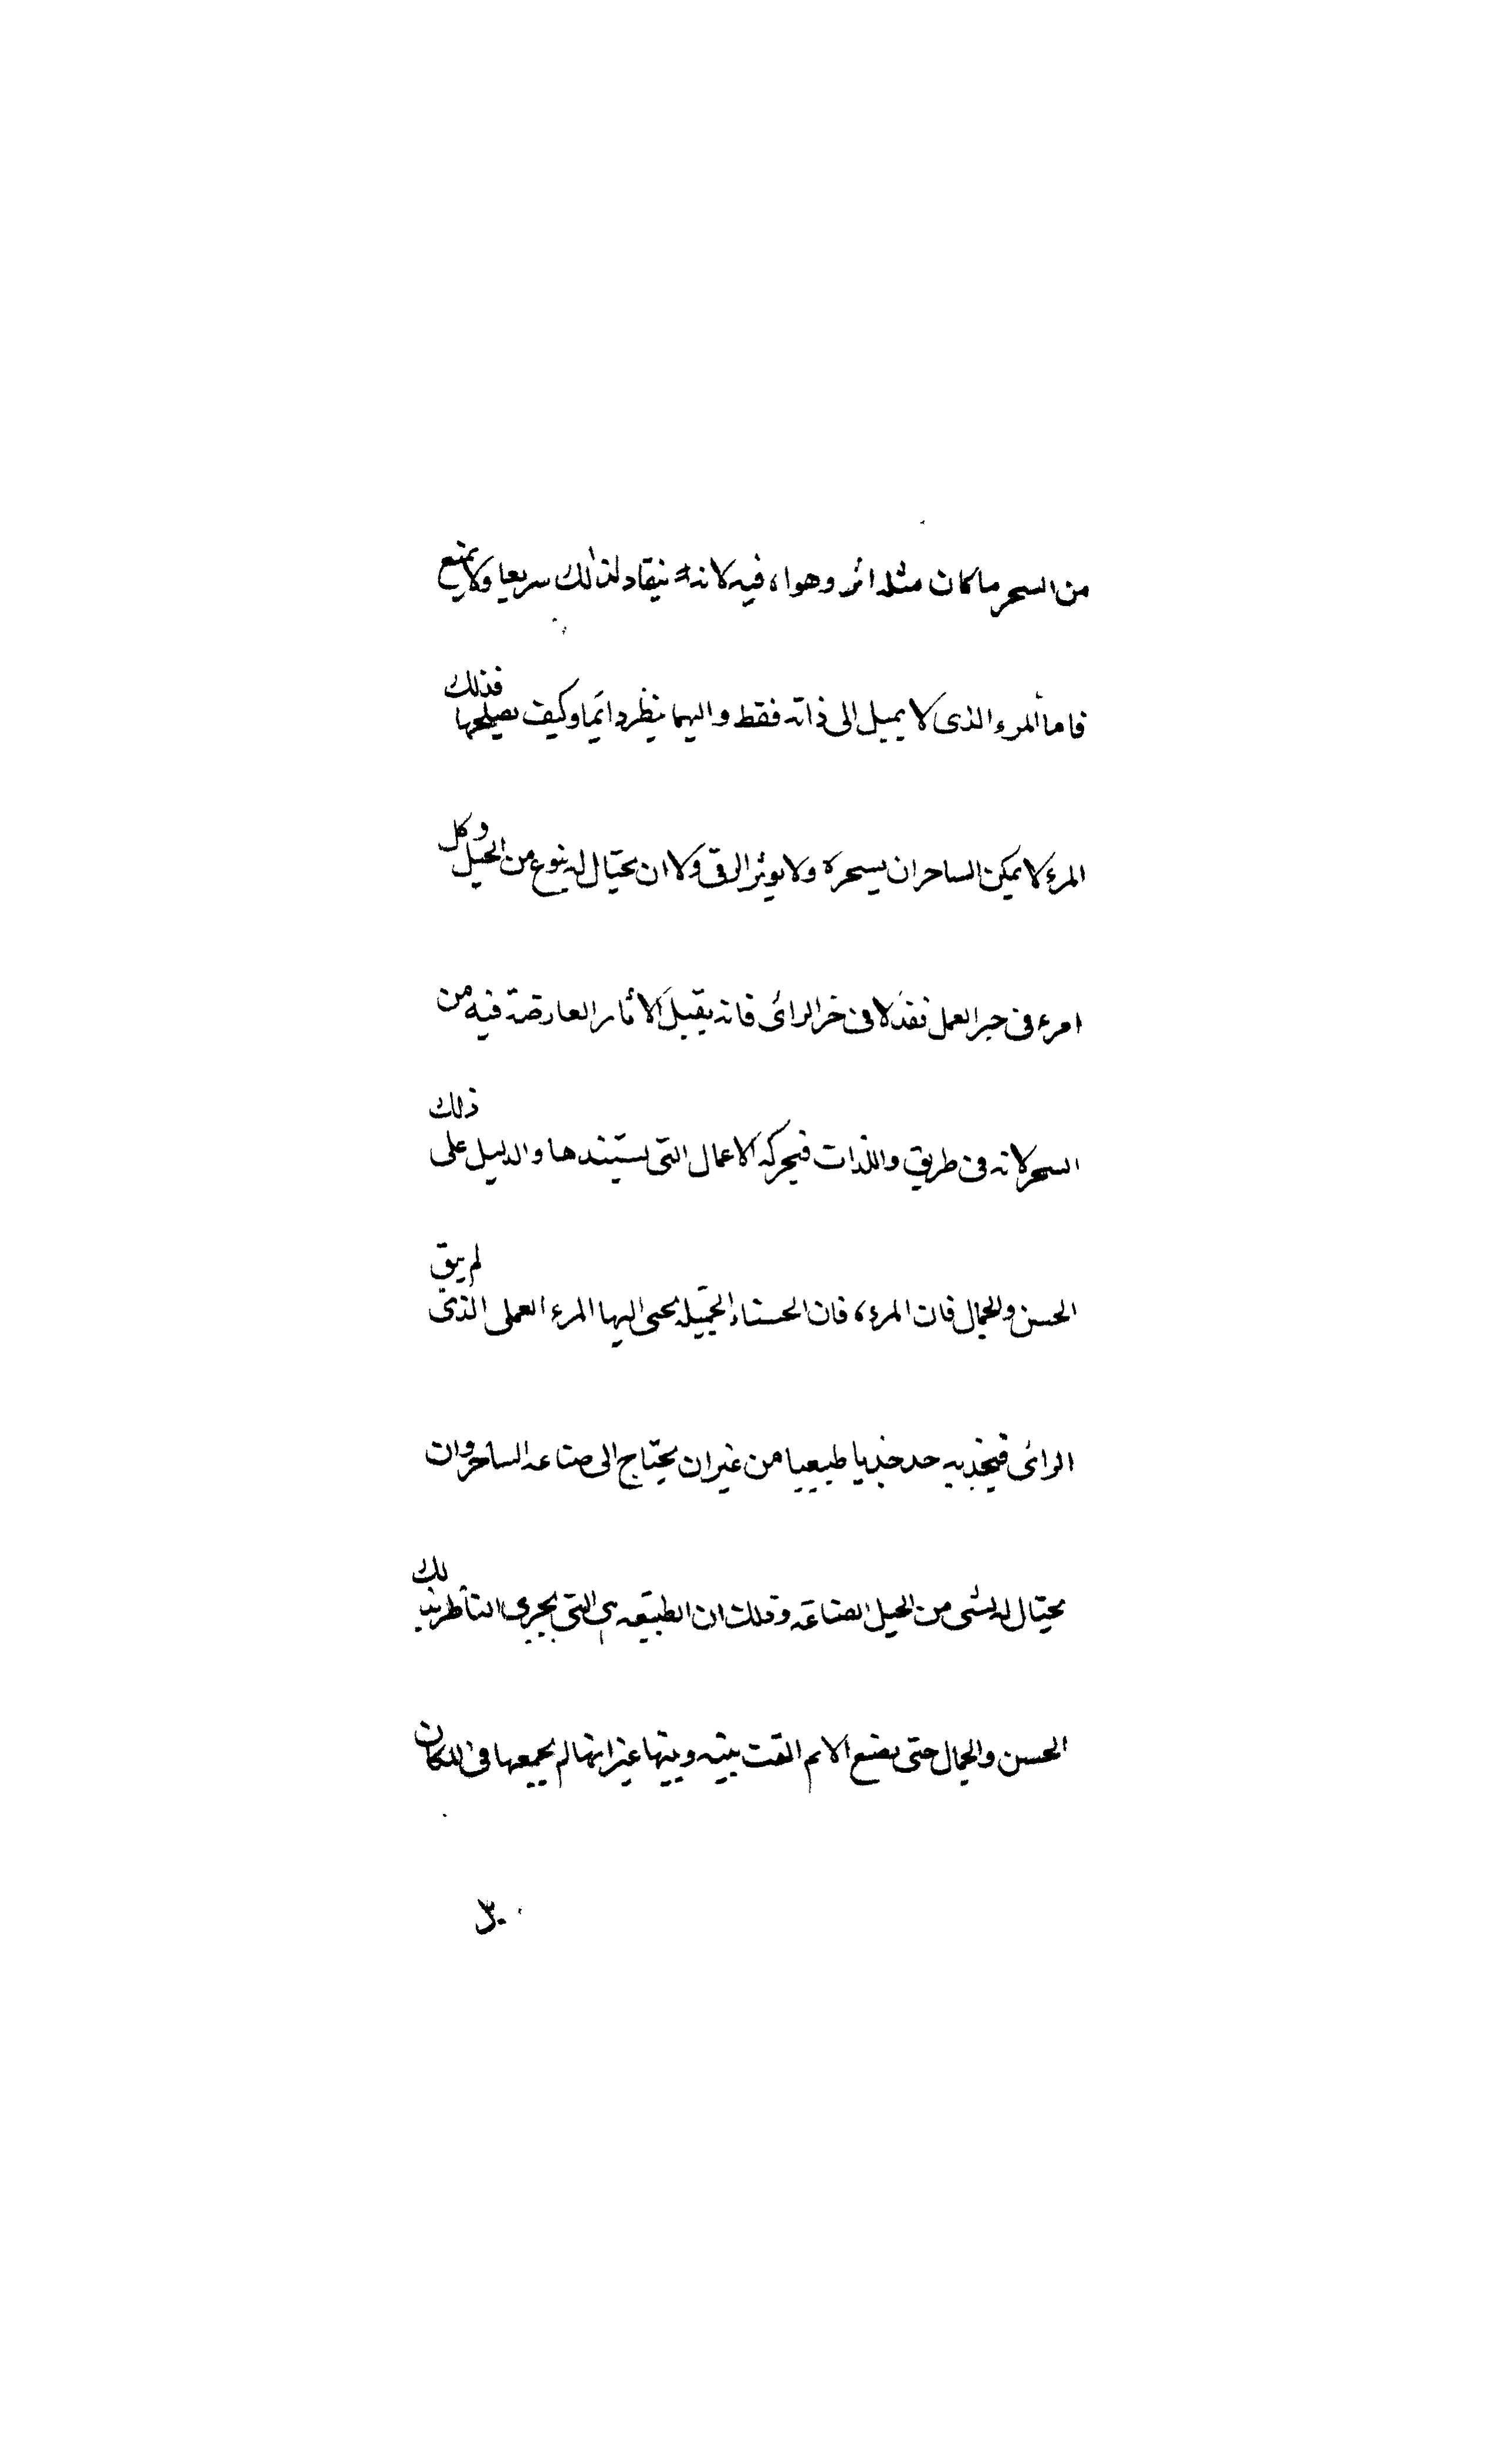 من السحر ما كان مثله اثر وهواه فيه لانه ينقاد لذالك سريعا ولا يمنع
فاما المرء الذى لا يميل الى ذاته فقط واليها ينظر دائما وكيف يصلحها فذلك
المرء لا يمكن الساحر ان يسحره ولا يوثر الرقى ولا ان يحتال له بنوع من الحيل وكل
امرء فى حيز العمل لا فى خر الرائى فانه يقبل الاثار العارضة فيه من
السحر لانه فى طريق واللذات فيحركه الاعمال التى يستلذها والدليل على ذلك
الحسن والجمال فان المرء، فان الحسناء الجميله اليها المرء العملى الذى لم
الرائى فيجذبه جذبا طبيعيا من غير ان يحتاج الى صناعه الساحر وان
يحتال له بشى من الحيل الصناعيه وذلك ان الطبيعه هى التى الناظر لك
الحسن والجمال حتى الفت بينه وبينها غير انها لم يجمعها فى المكان
٣٠